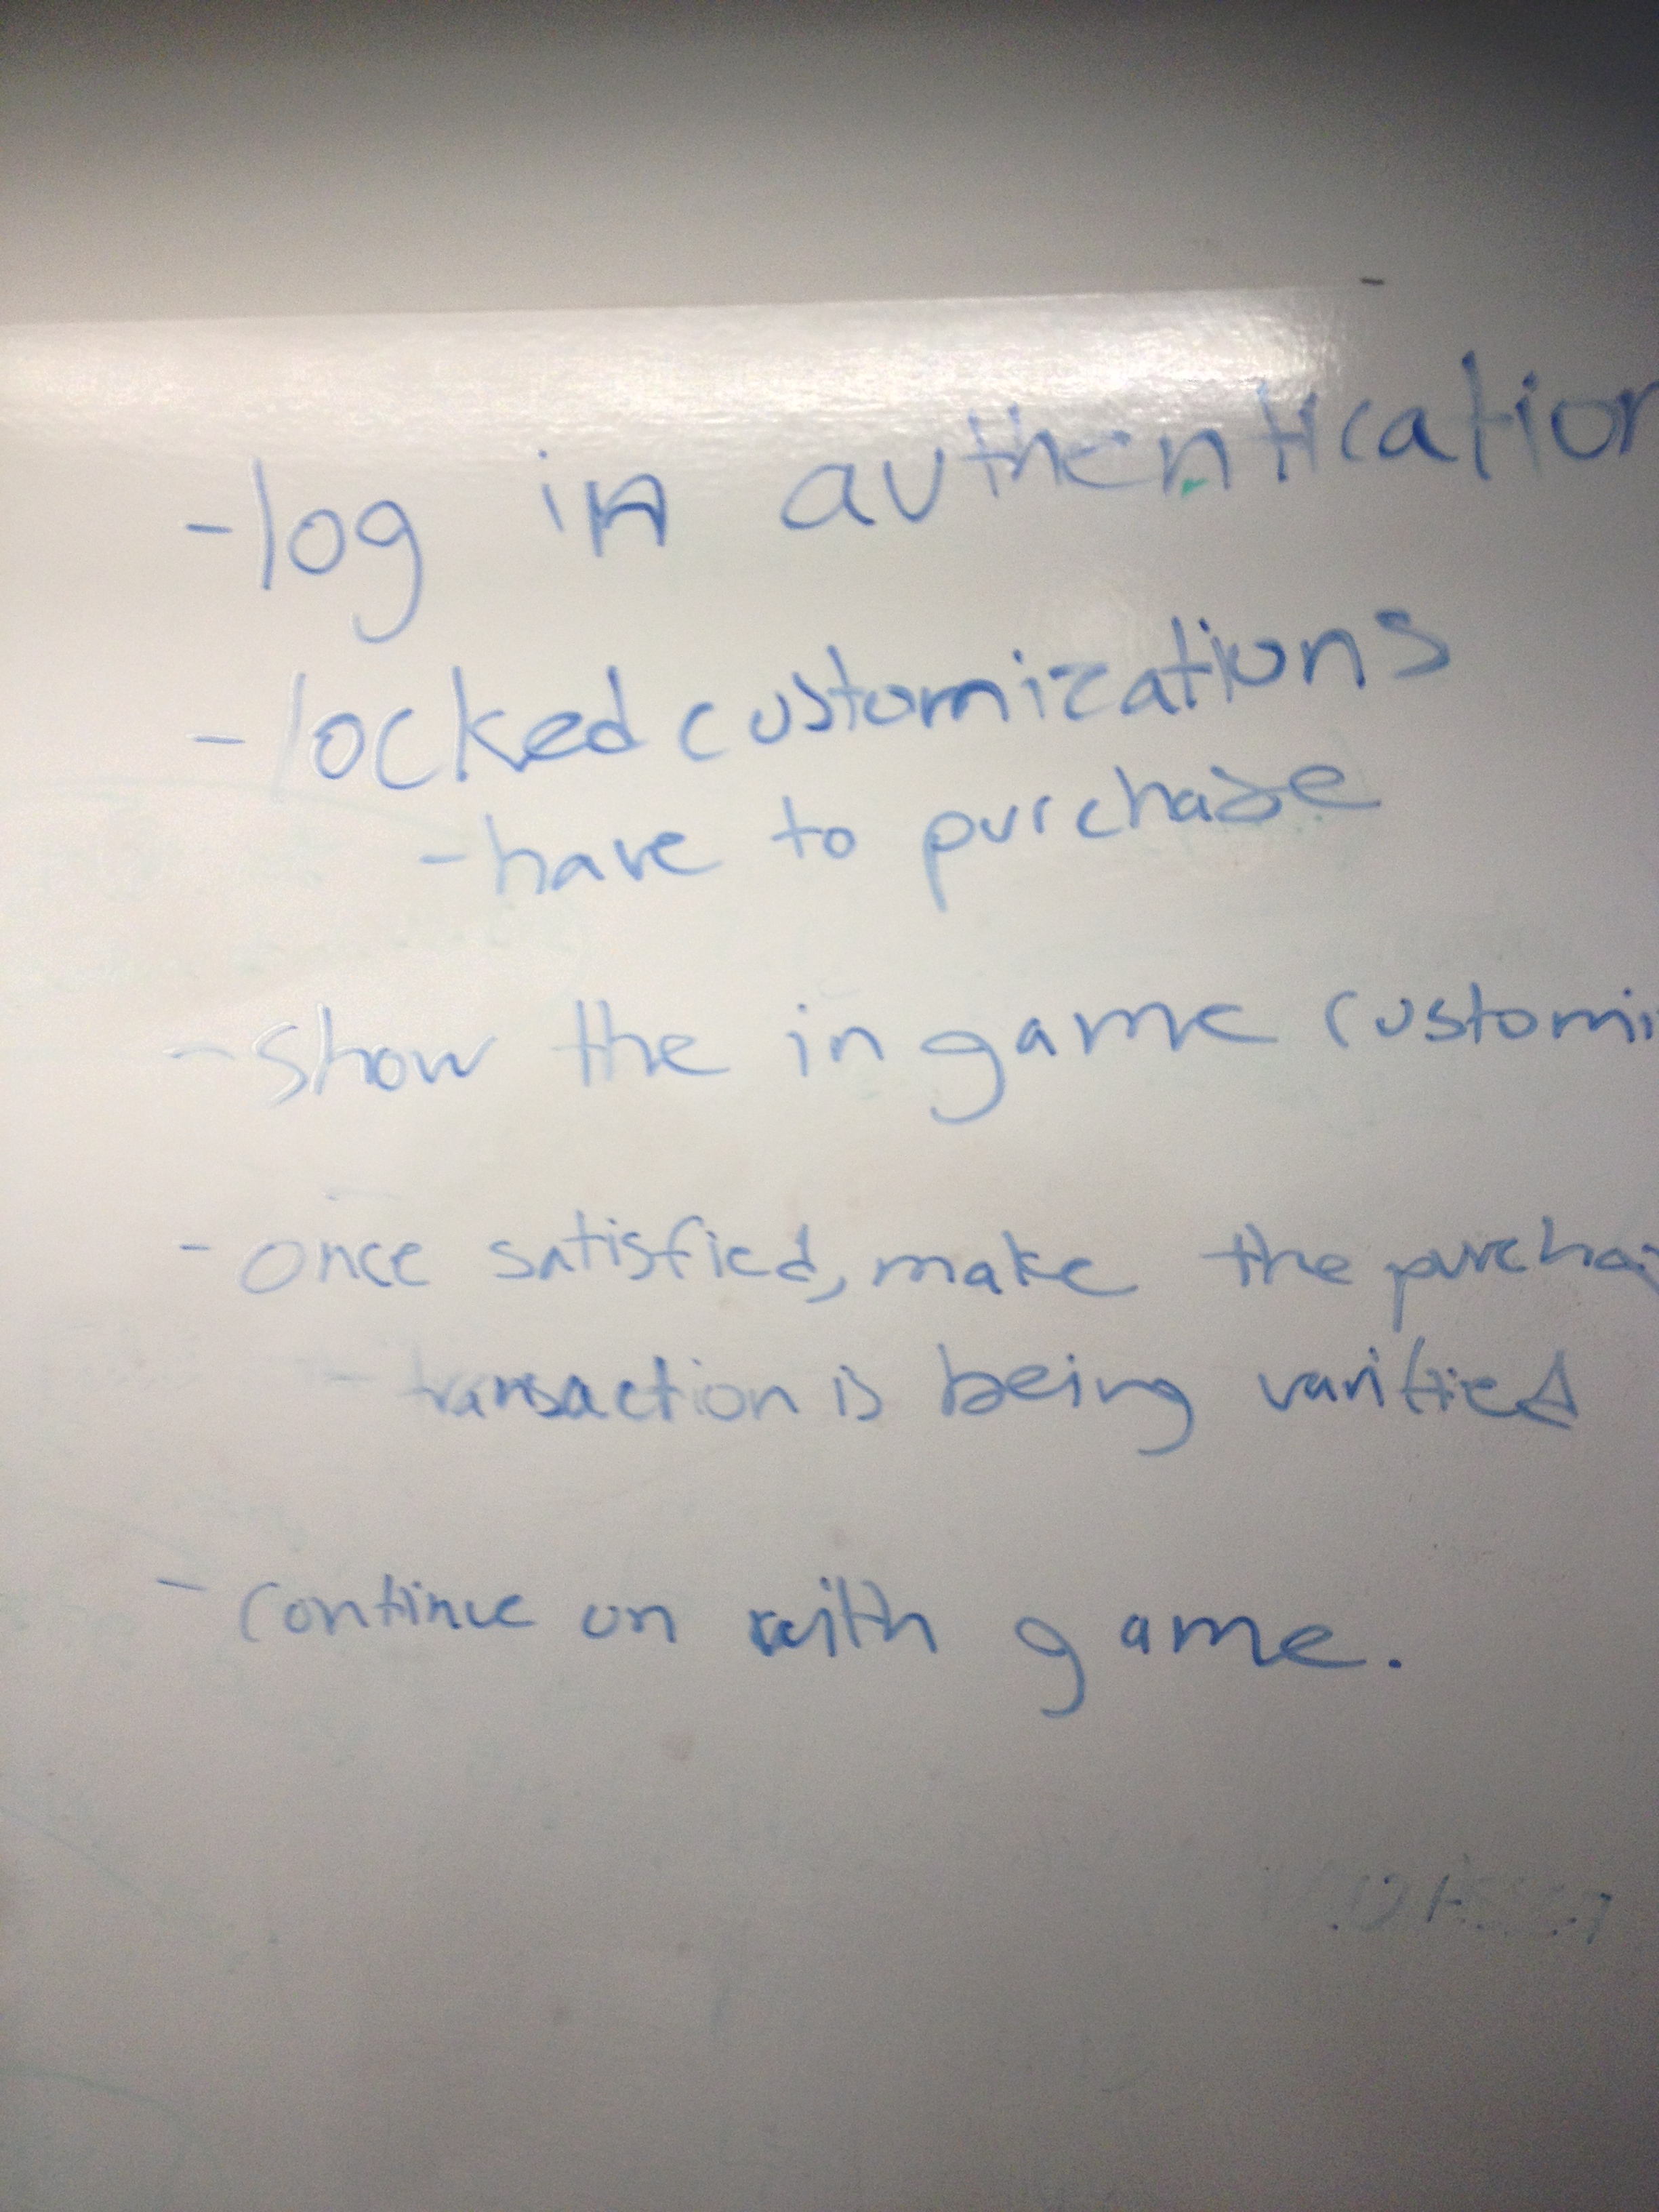 -log in authentication
-locked customizations
-have to purchase
-show the in game customi
-once satisfied, make the purchas
-transaction is being varified
-continue on with game.